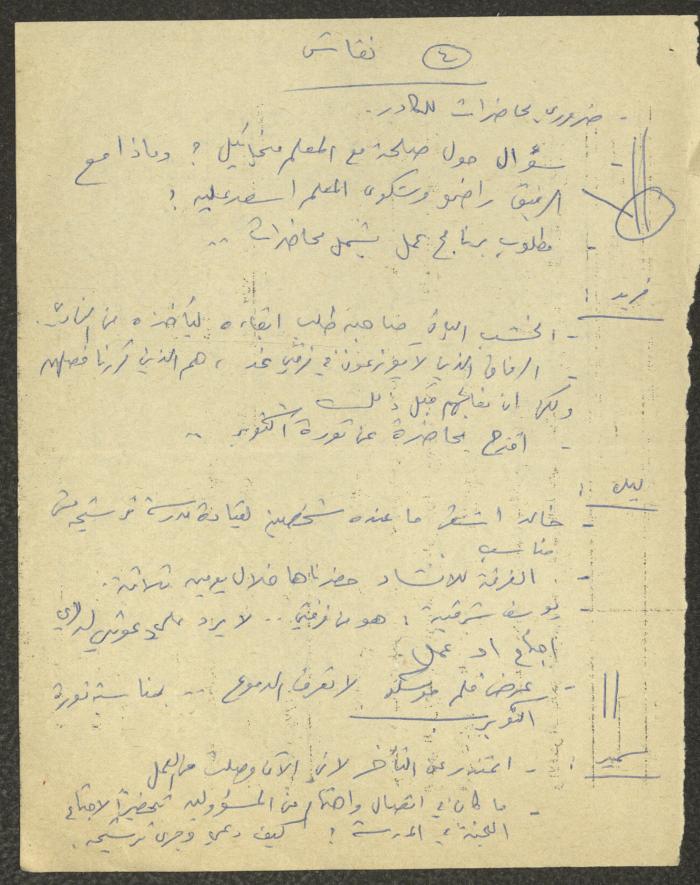 ٤ نقاش
- ضروري محاضرات للكادر.
- سؤال حول صلحة مع المعلم ميخائيل ؟ وماذا مع
الرفيق راضي وشكوى المعلم اسعد عليه ؟
- مطلوب برنامج عمل يشمل محاضرات ..
فريد :
- الخشب الباقي صاحبه طلب ابقاءه ليأخذه من النادي.
- الرفاق الذين لا يوزعون في فرقتي عند ، هم الذين قررنا فصلهم
ولكن ان نقابلهم قبل ذلك
- اقترح محاضرة عن ثورة اكتوبر ..
:
- خالد اشقر ما عنده شخصين لقيادة مدرسة ترشيحا مش
مناسب
- الفرقة للانشاد حضرناها خلال يومين ثلاثة.
- يوسف شرقية : هو من فرقتي .. لا يرد على دعوتي لأي
اجتماع او عمل.
- عرض فلم موسكو لا تعرف الدموع .. بمناسبة ثورة
اكتوبر
سمير :
- اعتذر عن التأخر لاني الآن وصلت من العمل
- ما كان في اتصال واهتمام من المسؤولين تحضيرا لاجتماع
اللجنة في المدرسة ! كيف دعي وجرى ترشيحه.